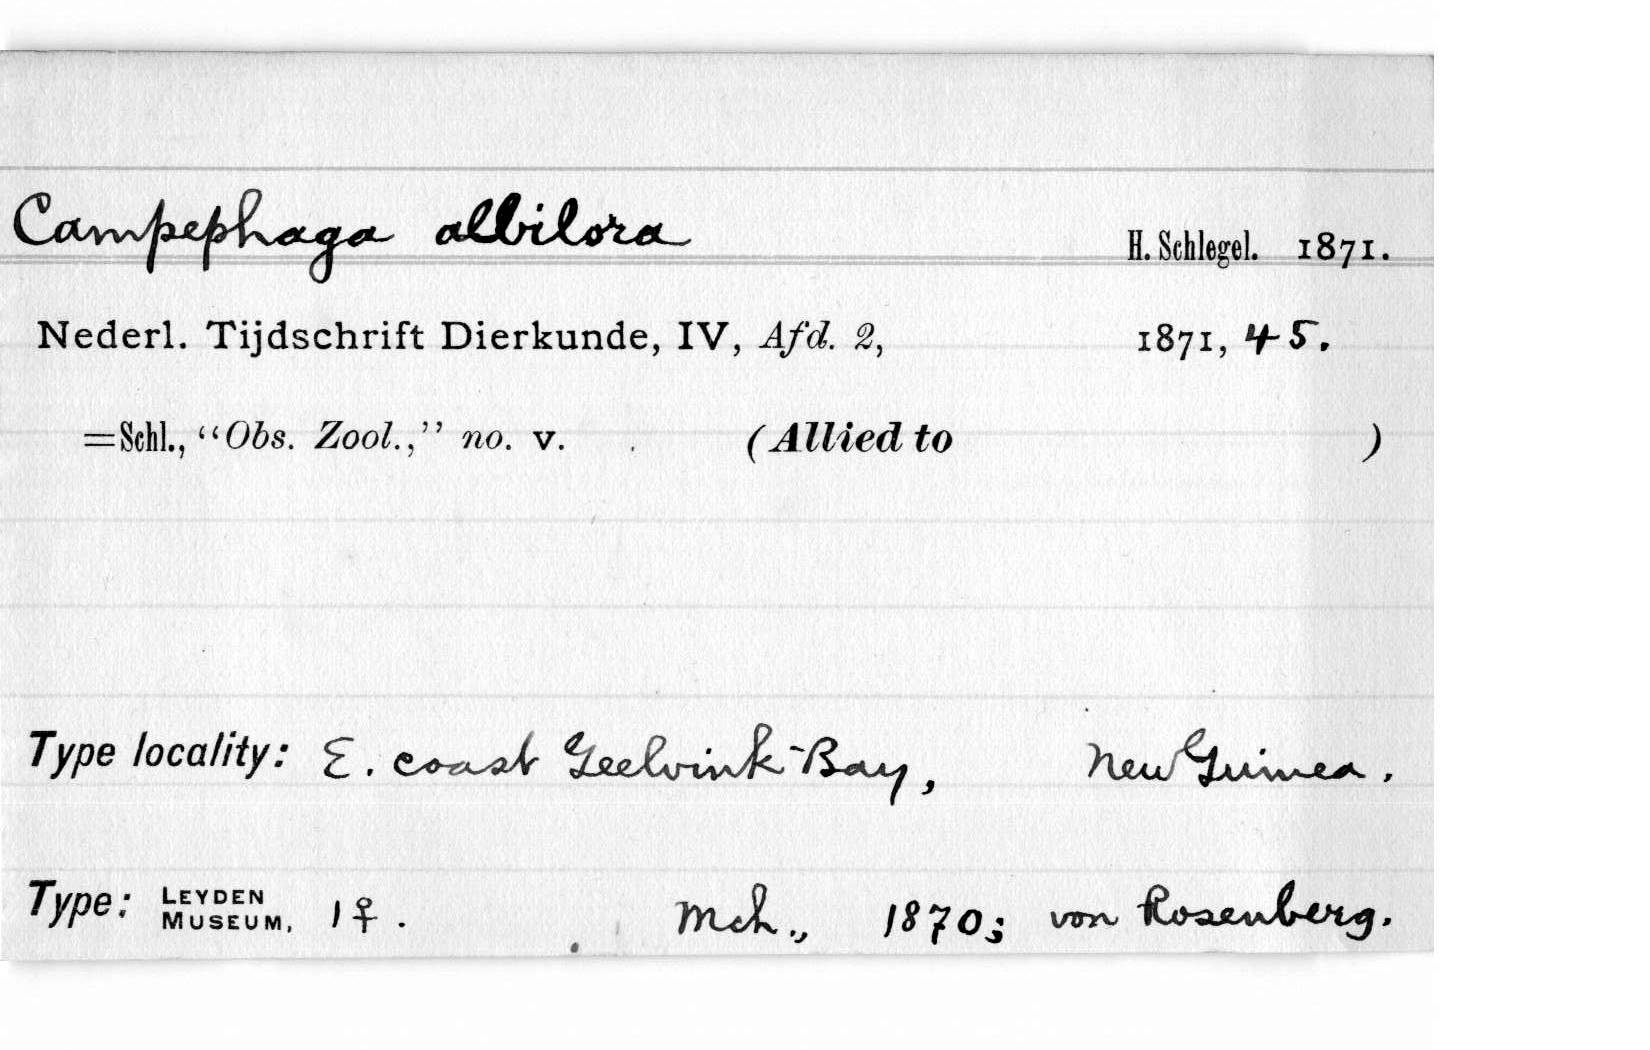 Campephaga albilora H. Schlegel. 1871.
Nederl. Tijdschrift Dierkunde, IV, Afd. 2, 1871, 45.
=Schl., “Obs. Zool.,” no. v. (Allied to )
Type locality: E. coast Geelvink-Bay, New Guinea.
Type: LEYDEN MUSEUM, 1♀. Mch., 1870; von Rosenberg.